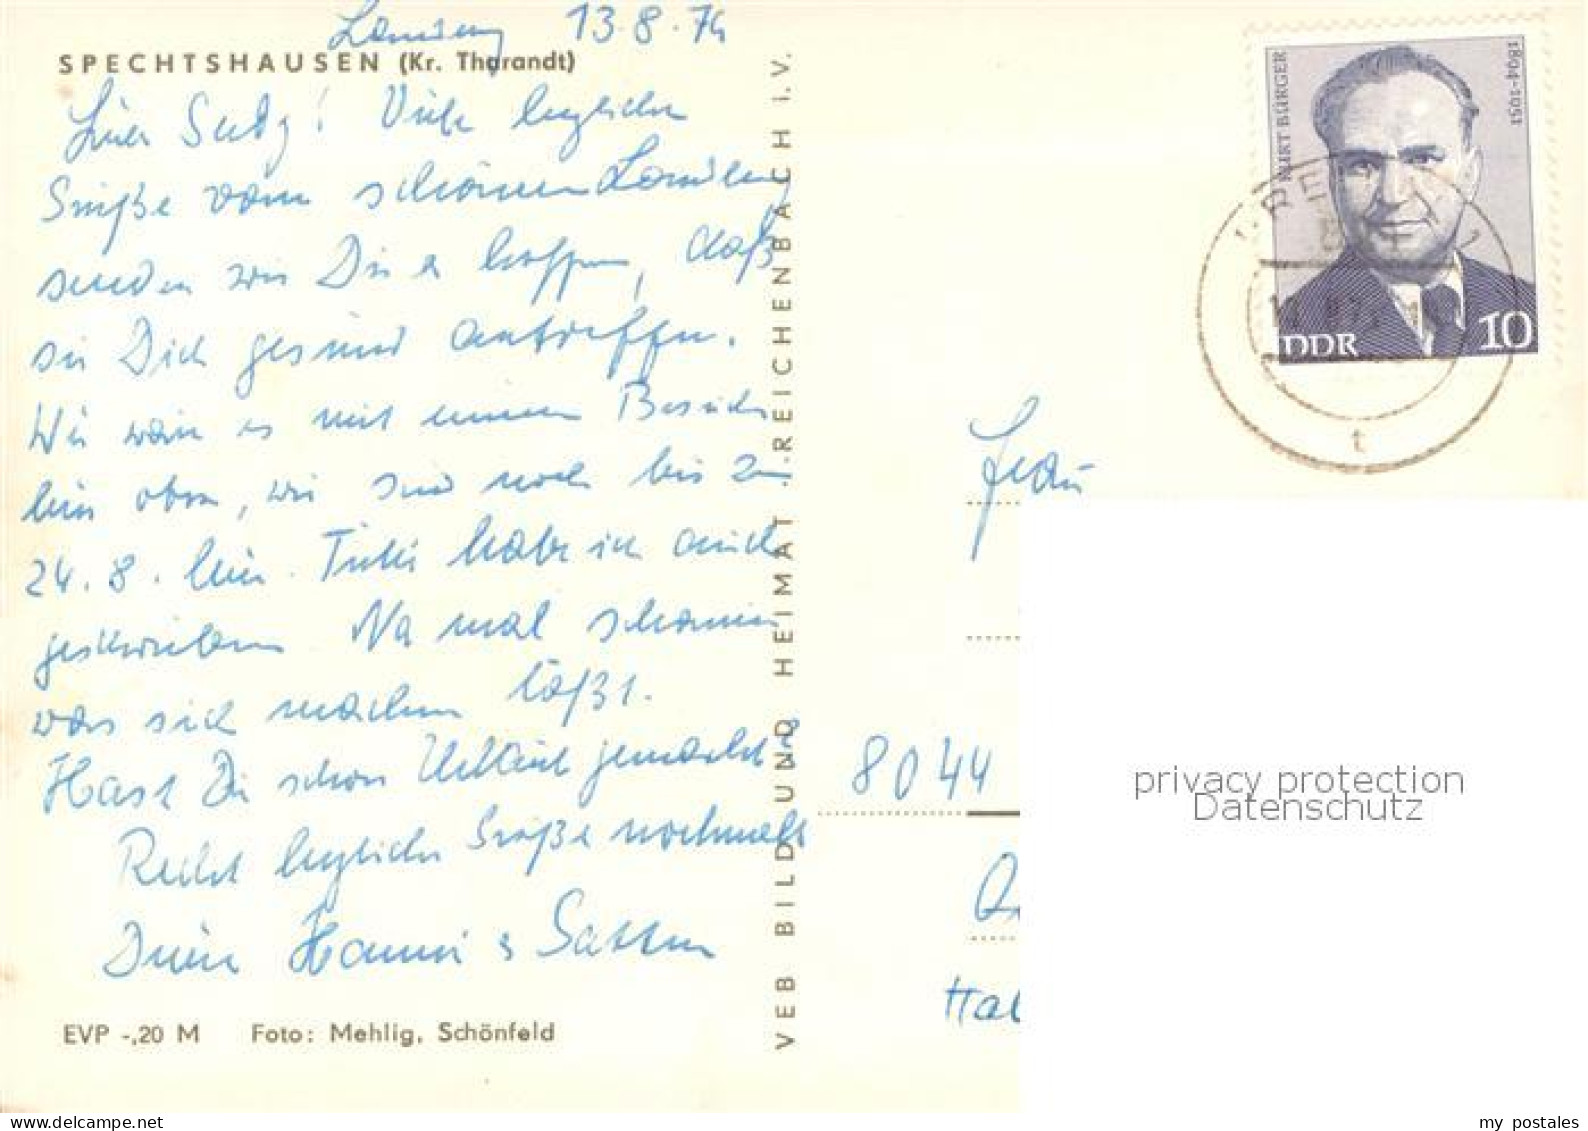 13.8.74
SPECHTSHAUSEN (Kr. Tharandt)
Viele herzliche
Grüße vom schönen
senden wir Dir & hoffen, daß
sie Dich gesund antreffen.
Wir waren es mit einem Besuch
hier oben, wir sind noch bis zum
24.8. hier. habe ich auch
geschrieben. Na mal schauen
was sich machen läßt.
Hast Du schon Urlaub gemacht?
Recht herzliche Grüße nochmals
Deine Hanni &
EVP -,20 M Foto: Mehlig, Schönfeld
VEB BILD UND HEIMAT REICHENBACH I. V.
KURT BÜRGER
1894-1951
DDR 10
t
Frau
8044
privacy protection
Datenschutz
my postales